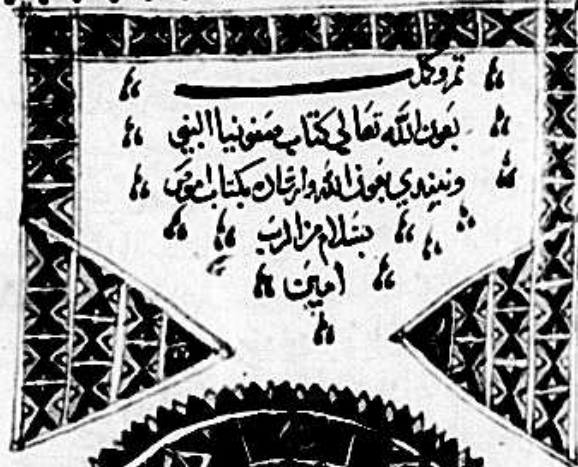 تم وكمل
بعون الله تعالى كتاب صفونيا النبي
ونبتدي بعون الله وارشاده بكتاب اموص
بسلام من الرب
امين